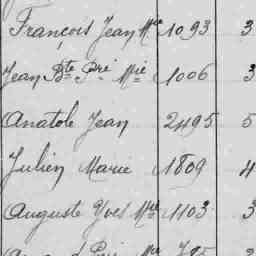 François Jean Mie 1093 3
Jean Bte Pre Mie 1006 3
Anatole Jean 2495 5
Julien Marie 1809 4
Auguste Yves Mie 1103 3
Mie 795